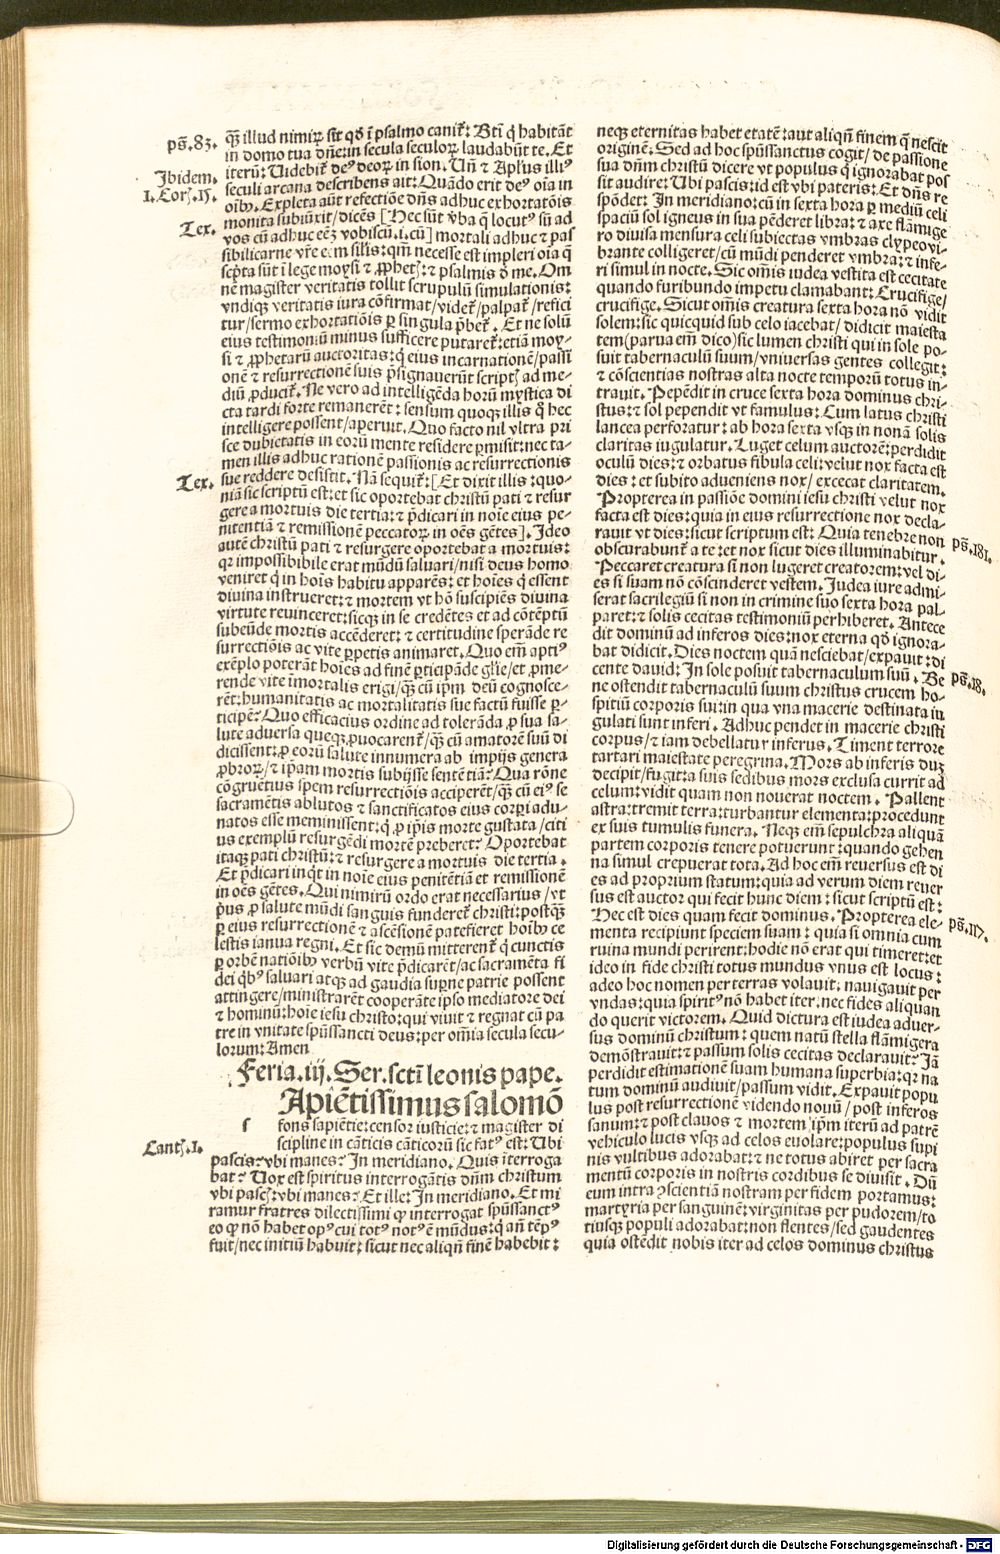 pš.83.
Ibidem.
1.Corꝭ.15.
Tex.
Tex.
Cantꝭ.1.
qꝫ illud nimiꝝ sit qđ ī psalmo caniť: Bťi q̇ habitāt
in domo tua dñe: in secula seculoꝝ laudabūt te. Et
iterū: Uidebiť deꝰ deoꝝ in sion. Uñ ⁊ Apľus illiꝰ
seculi arcana describens ait: Quādo erit deꝰ oīa in
oībꝰ. Expleta aūt refectiōe dñs adhuc exhortatōis
monita subiūxit/ dicēs [Hec sūt v̄ba q̄ locutꝰ sū ad
vos cū adhuc eēꝫ vobiscū.i.cū] mortali adhuc ⁊ pas
sibilicarne vr̄e eēm silis: qm̄ necesse est impleri oīa q̄
scpta sūt ī lege moysi ⁊ ꝓphetꝭ: ⁊ psalmis ō me. Om
nē magister veritatis tollit scrupulū simulationis:
vndiqꝫ veritatis iura cōfirmat/ videť/palpať/refici
tur/sermo exhortatiōis ꝑ singula p̄beť. Et ne solū
eius testimoniū minus sufficere putareť: etiā moy-
si ⁊ ꝓphetarū auctoritas: q̄ eius incarnationē/passi
onē ⁊ resurrectionē suis p̄signauerūt scriptꝭ ad me-
diū ꝓduciť. Ne vero ad intelligēda horū mystica di
cta tardi forte remanerēt: sensum quoqꝫ illis q̄ hec
intelligere possent/aperuit. Quo facto nil vltra pri
sce dubietatis in eorū mente residere ꝑmisit: nec ta-
men illis adhuc rationē passionis ac resurrectionis
sue reddere desistit. Nā sequiť: [Et dixit illis: quo-
niā sic scriptū est: et sic oportebat christū pati ⁊ resur
gere a mortuis die tertia: ⁊ p̄dicari in noīe eius pe-
nitentiā ⁊ remissionē peccatoꝝ in oēs gētes]. Ideo
autē christū pati ⁊ resurgere oportebat a mortuis:
qꝛ impossibile erat mūdū saluari/nisi deus homo
veniret q̇ in hoīs habitu apparēs: et hoīes q̇ essent
diuina instrueret: ⁊ mortem vt hō suscipiēs diuina
virtute reuinceret: sicqꝫ in se credētes et ad cōtēptū
subeūde mortis accēderet: ⁊ certitudine sperāde re
surrectiōis ac vite ꝑpetis animaret. Quo em̄ aptiꝰ
exēplo poterāt hoīes ad finē ꝑticipāde gľie/et ꝓme-
rende vite īmortalis erigi/qꝫ cū ip̄m deū cognosce-
rēt: humanitatis ac mortalitatis sue factū fuisse ꝑ-
ticipē? Quo efficacius ordine ad tolerāda ꝓ sua sa-
lute aduersa queqꝫ ꝓuocarenť/qꝫ cū amatorē suū di
dicissent: ꝓ eorū salute innumera ab impijs genera
ꝓbroꝝ/ ⁊ ip̄am mortis subijsse sentētiā? Qua rōne
cōgruētius spem resurrectiōis acciperēt/qꝫ cū eiꝰ se
sacramētis ablutos ⁊ sanctificatos eius corꝑi adu-
natos esse meminissent: q̇ ꝓ ip̄is morte gustata /citi
us exemplū resurgēdi mortē preberet? Oportebat
itaqꝫ pati christū: ⁊ resurgere a mortuis die tertia.
Et p̄dicari inqt in noīe eius penitētiā et remissionē
in oēs gētes. Qui nimirū ordo erat necessarius/ vt
p̄us ꝓ salute mūdi sanguis funderet̄ christi: postqꝫ
ꝑ eius resurrectionē ⁊ ascēsionē patefieret hoībꝰ ce
lestis ianua regni. Et sic demū mitterenť q̇ cunctis
ꝑ orbē natiōibꝰ verbū vite p̄dicarēt/ac sacramēta fi
dei qbꝰ saluari atqꝫ ad gaudia suꝑne patrie possent
attingere/ministrarēt cooperāte ipso mediatore dei
⁊ hominū: hoīe iesu christo: qui viuit ⁊ regnat cū pa
tre in vnitate spūssancti deus: per om̄ia secula secu-
lorum: Amen
Feria.iij. Ser.sctī leonis pape.
s Apiētissimus salomō
fons sapiētie: censor iusticie: ⁊ magister di
scipline in cāticis cāticorū sic fatꝰ est: Ubi
pascis? vbi manes? In meridiano. Quis īterroga
bat? Uox est spiritus interrogātis dn̄m christum
vbi pascꝭ: vbi manes? Et ille: In meridiano. Et mi
ramur fratres dilectissimi qꝙ interrogat spūssanctꝰ
eo qꝙ nō habet opꝰ cui totꝰ notꝰ ē mūdus: q̇ añ tēpꝰ
fuit/nec initiū habuit: sicut nec aliqñ finē habebit:
neqꝫ eternitas habet etatē: aut aliqñ finem q̄ nescit
originē. Sed ad hoc spūssanctus cogit/ de passione
sua dn̄m christū dicere vt populus q̇ ignorabat pos
sit audire: Ubi pascis: id est vbi pateris: Et dn̄s re
spōdet: In meridiano: cū in sexta hora ꝑ mediū celi
spaciū sol igneus in sua pēderet libra: ⁊ axe flāmige
ro diuisa mensura celi subiectas vmbras clypeo vi-
brante colligeret/cū mūdi penderet vmbra: ⁊ infe-
ri simul in nocte. Sic om̄is iudea vestita est cecitate
quando furibundo impetu clamabant: Crucifige/
crucifige. Sicut om̄is creatura sexta hora nō vidit
solem: sic quicquid sub celo iacebat/ didicit maiesta
tem(parua em̄ dico)sic lumen christi qui in sole po-
suit tabernaculū suum/vniuersas gentes collegit:
⁊ cōscientias nostras alta nocte temporū totus in-
trauit. Pepēdit in cruce sexta hora dominus chri-
stus: ⁊ sol pependit vt famulus: Cum latus christi
lancea perforatur: ab hora sexta vsqꝫ in nonā solis
claritas iugulatur. Luget celum auctorē: perdidit
oculū dies: ⁊ orbatus fibula celi: velut nox facta est
dies: et subito adueniens nox/ excecat claritatem.
Propterea in passiōe domini iesu christi velut nox
facta est dies: quia in eius resurrectione nox decla-
rauit vt dies: sicut scriptum est: Quia tenebre non
obscurabunť a te: et nox sicut dies illuminabitur.
Peccaret creatura si non lugeret creatorem: vel di-
es si suam nō cōscinderet vestem. Iudea iure admi-
serat sacrilegiū si non in crimine suo sexta hora pal-
paret: ⁊ solis cecitas testimoniū perhiberet. Antece
dit dominū ad inferos dies: nox eterna qđ ignora-
bat didicit. Dies noctem quā nesciebat/expauit: di
cente dauid: In sole posuit tabernaculum suū. Be
ne ostendit tabernaculū suum christus crucem ho-
spitiū corporis sui: in qua vna macerie destinata iu
gulati sunt inferi. Adhuc pendet in macerie christi
corpus/ ⁊ iam debellatur infernus. Timent terrore
tartari maiestate peregrina. Mors ab inferis duꝫ
decipit/fugit: a suis sedibus mors exclusa currit ad
celum: vidit quam non nouerat noctem. Pallent
astra: tremit terra: turbantur elementa: procedunt
ex suis tumulis funera. Neqꝫ em̄ sepulchra aliquā
partem corporis tenere potuerunt: quando gehen
na simul crepuerat tota. Ad hoc em̄ reuersus est di
es ad proprium statum: quia ad verum diem reuer
sus est auctor qui fecit hunc diem: sicut scriptū est:
Hec est dies quam fecit dominus. Propterea ele-
menta recipiunt speciem suam: quia si omnia cum
ruina mundi perirent: hodie nō erat qui timeret: et
ideo in fide christi totus mundus vnus est locus:
adeo hoc nomen per terras volauit: nauigauit per
vndas: quia spiritꝰ nō habet iter, nec fides aliquan
do querit victorem. Quid dictura est iudea aduer-
sus dominū christum: quem natū stella flāmigera
demōstrauit: ⁊ passum solis cecitas declarauit? Iā
perdidit estimationē suam humana superbia: qꝛ na
tum dominū audiuit/passum vidit. Expauit popu
lus post resurrectionē videndo nouū/ post inferos
sanum: ⁊ post clauos ⁊ mortem ip̄m iterū ad patrē
vehiculo lucis vsqꝫ ad celos euolare: populus supi
nis vultibus adorabat: ⁊ ne totus abiret per sacra
mentū corporis in nostris cordibus se diuisit. Dū
eum intra ꝯscientiā nostram per fidem portamus:
martyria per sanguinē: virginitas per pudorem/to
tiusqꝫ populi adorabat: non flentes/sed gaudentes
quia ostēdit nobis iter ad celos dominus christus
pš.181.
pš.18.
pš.117.
Digitalisierung gefördert durch die Deutsche Forschungsgemeinschaft - DFG